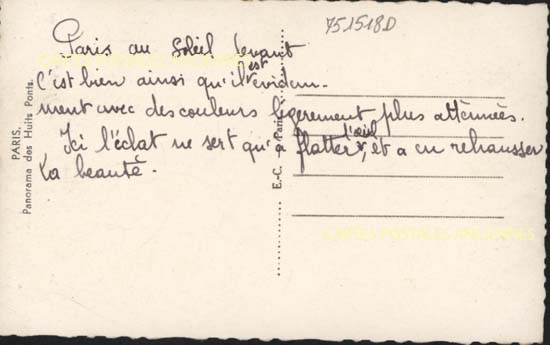 751518D
Paris au Soleil levant
C'est bien ainsi qu'il est évidem-
ment avec des couleurs légerement plus atténuées.
Ici l'éclat ne sert qu'à flatter l'œil, et a en rehausser
la beauté.
PARIS.
Panorama des Huits Ponts.
E.-C. Paris
CARTES POSTALES ANCIENNES
CARTES POSTALES ANCIENNES